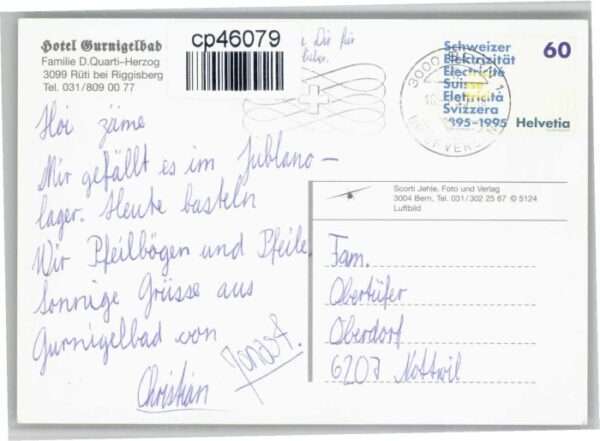 Hotel Gurnigelbad
Familie D.Quarti-Herzog
3099 Rüti bei Riggisberg
Tel. 031/809 00 77
cp46079
Die für
3000
Schweizer
Elektrizität
Electricité
Suisse
Elettricità
Svizzera
1895-1995
60
Helvetia
Hoi zäme
Mir gefällt es im Jublano-
lager. Heute basteln
Wir Pfeilbögen und Pfeile.
Sonnige Grüsse aus
Gurnigelbad von
Christian
Jonas F.
Scorti Jehle, Foto und Verlag
3004 Bern, Tel. 031/302 25 67 © 5124
Luftbild
Fam.
Obertüfer
Oberdorf
6207 Nottwil